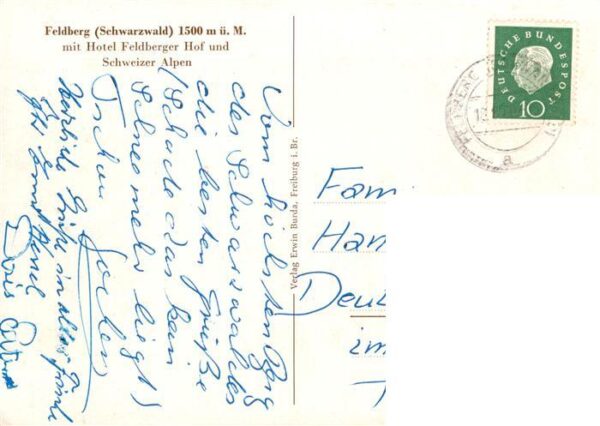 Feldberg (Schwarzwald) 1500 m ü. M.
mit Hotel Feldberger Hof und
Schweizer Alpen
Vom höchsten Berg
des Schwarzwaldes
die besten Grüße
(Schade das kein
Schnee mehr liegt)
Tschau Jochen
Herzliche Grüße in alter Frische
Doris
Verlag Erwin Burda, Freiburg i. Br.
DEUTSCHE BUNDESPOST
10
FELDBERG
a
Fam
Han
Deut
im